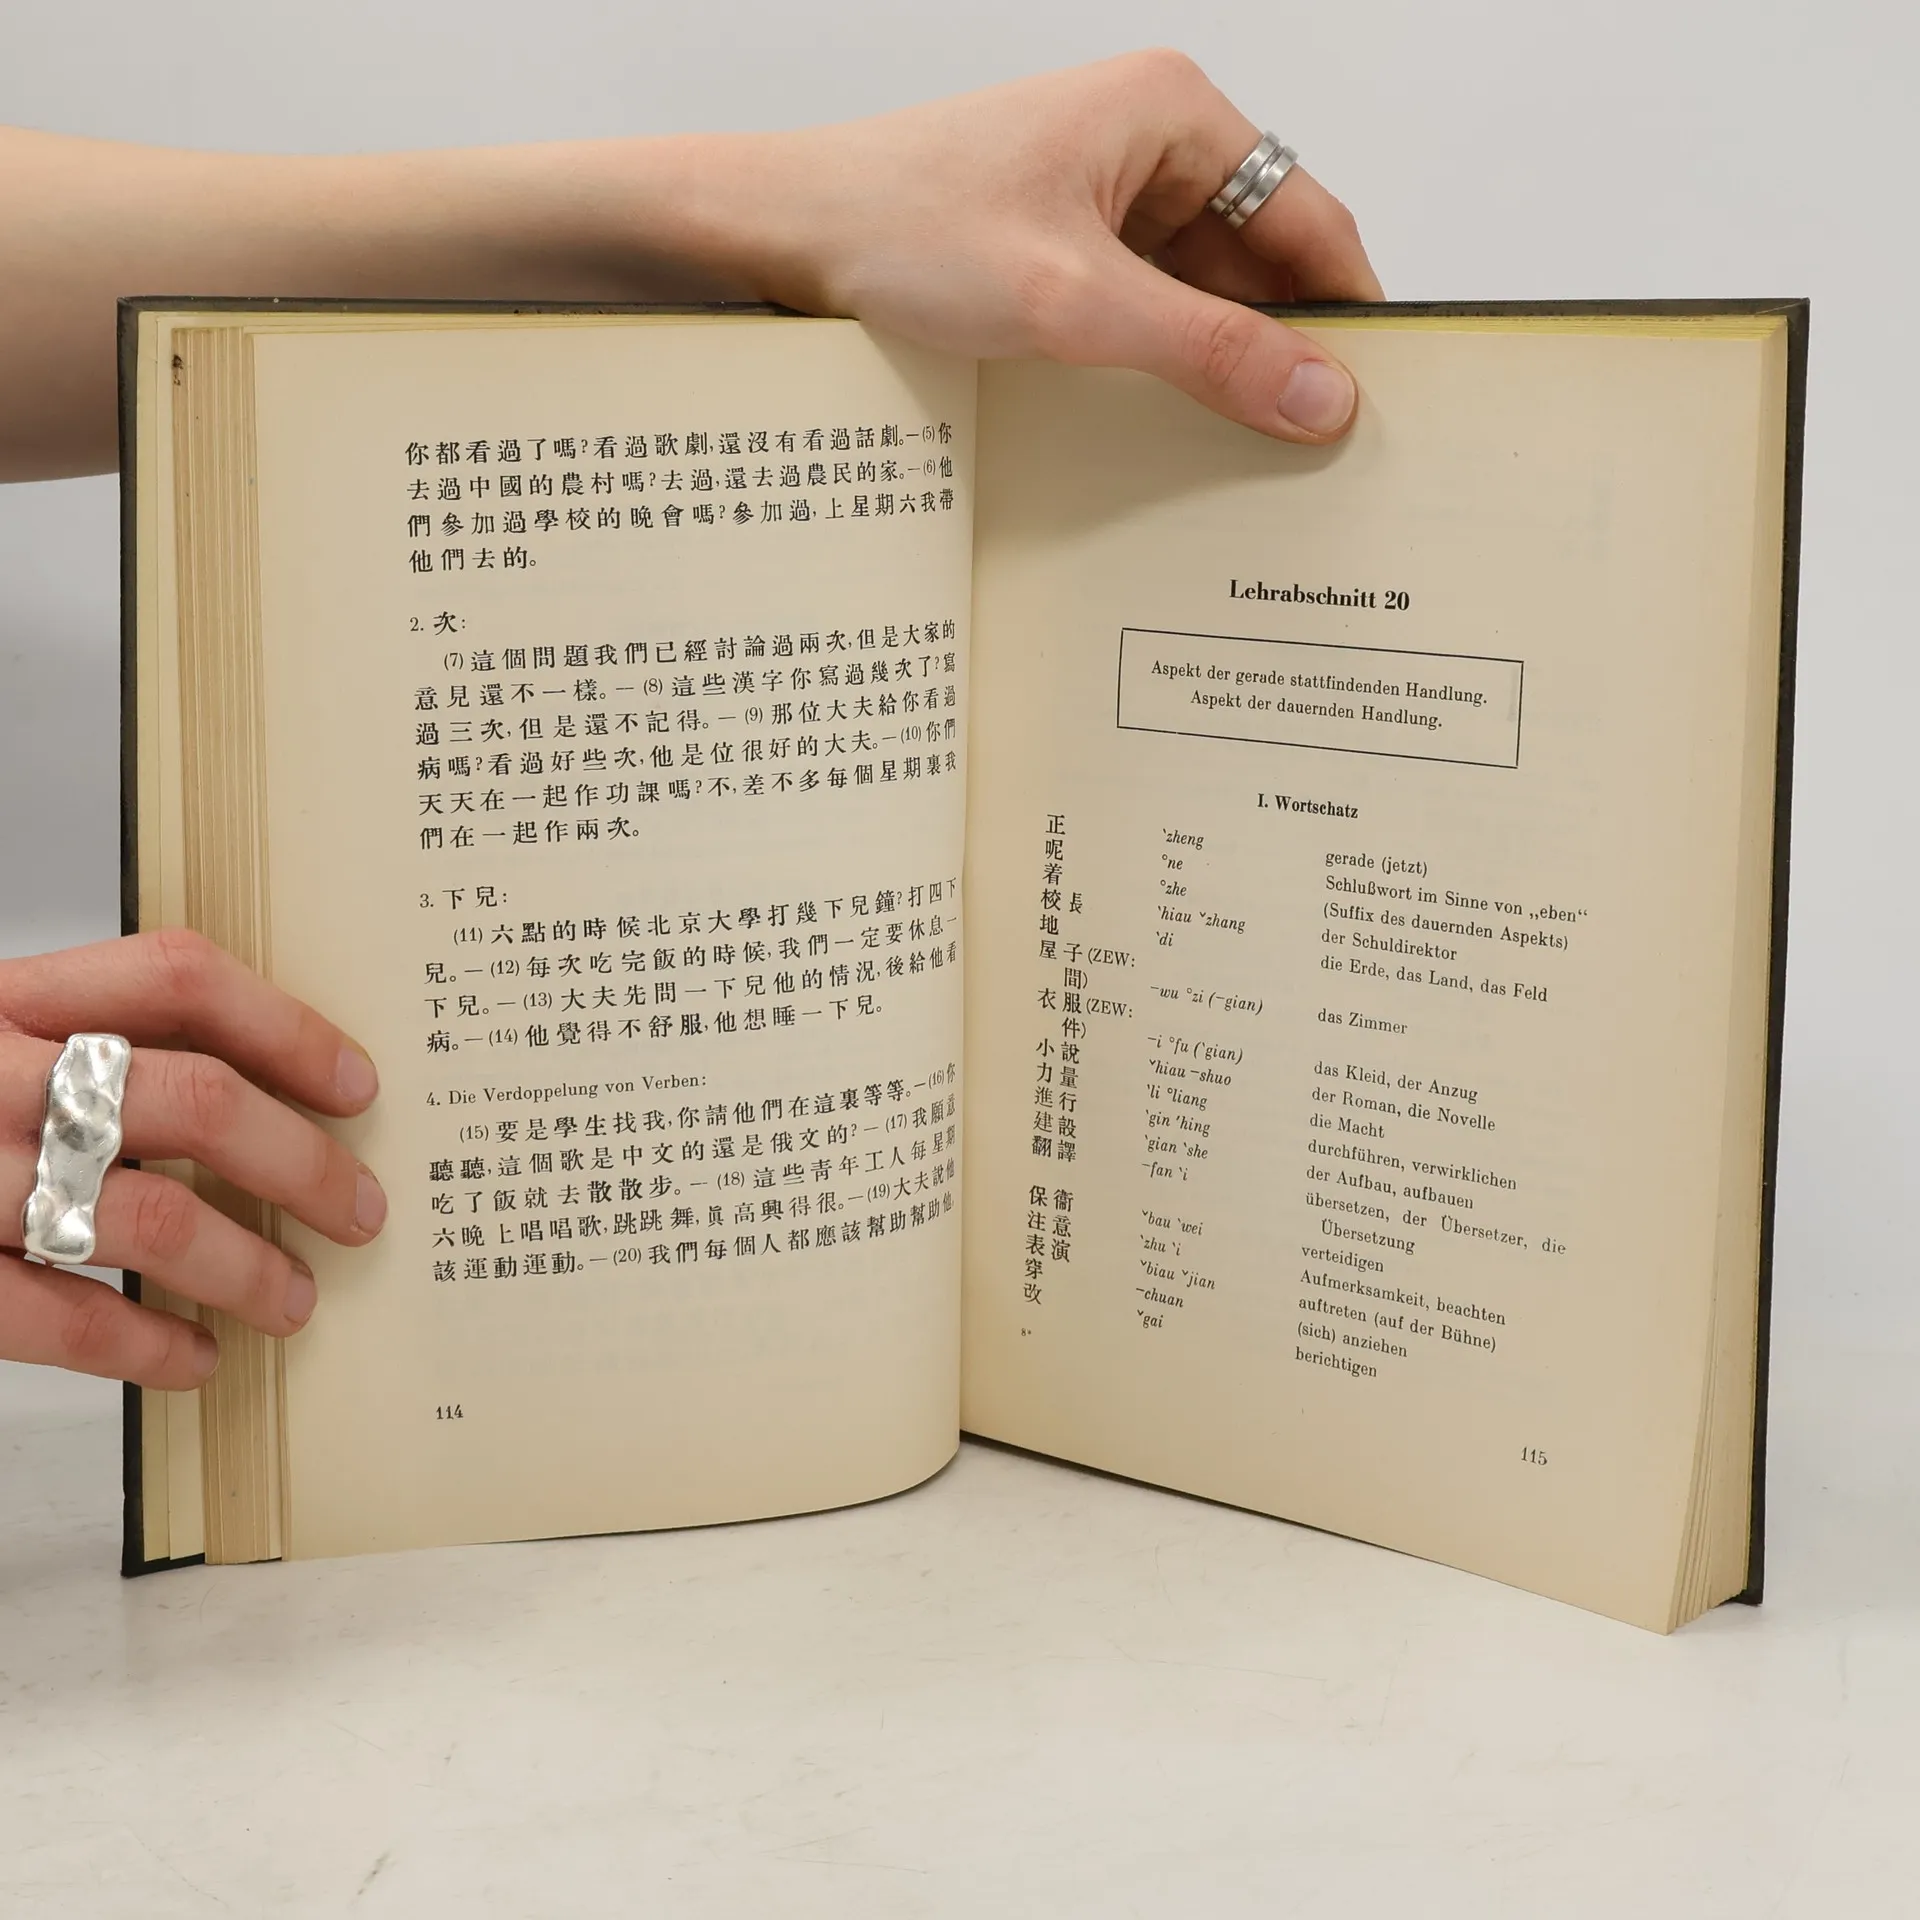 你都看過了嗎?看過歌劇,還沒有看過話劇。—(5)你
去過中國的農村嗎?去過,還去過農民的家。—(6)他
們參加過學校的晚會嗎?參加過,上星期六我帶
他們去的。
2. 次:
(7)這個問題我們已經討論過兩次,但是大家的
意見還不一樣。—(8)這些漢字你寫過幾次了?寫
過三次,但是還不記得。—(9)那位大夫給你看過
病嗎?看過好些次,他是位很好的大夫。—(10)你們
天天在一起作功課嗎?不,差不多每個星期裏我
們在一起作兩次。
3. 下兒:
(11)六點的時候北京大學打幾下兒鐘?打四下
兒。—(12)每次吃完飯的時候,我們一定要休息一
下兒。—(13)大夫先問一下兒他的情況,後給他看
病。—(14)他覺得不舒服,他想睡一下兒。
4. Die Verdoppelung von Verben:
(15)要是學生找我,你請他們在這裏等等。—(16)你
聽聽,這個歌是中文的還是俄文的?—(17)我願意
吃了飯就去散散步。—(18)這些青年工人每星期
六晚上唱唱歌,跳跳舞,眞高興得很。—(19)大夫說他
該運動運動。—(20)我們每個人都應該幫助幫助他.
114
Lehrabschnitt 20
Aspekt der gerade stattfindenden Handlung.
Aspekt der dauernden Handlung.
I. Wortschatz
正 ˋzheng gerade (jetzt)
呢 °ne Schlußwort im Sinne von „eben“
着 °zhe (Suffix des dauernden Aspekts)
校長 ˋhiau ˇzhang der Schuldirektor
地 ˋdi die Erde, das Land, das Feld
屋子(ZEW:
間) ¯wu °zi (¯gian) das Zimmer
衣服(ZEW:
件) ¯i °fu (ˋgian) das Kleid, der Anzug
小說 ˇhiau ¯shuo der Roman, die Novelle
力量 ˋli °liang die Macht
進行 ˋgin ˊhing durchführen, verwirklichen
建設 ˋgian ˋshe der Aufbau, aufbauen
翻譯 ¯fan ˋi übersetzen, der Übersetzer, die
Übersetzung
保衞 ˇbau ˋwei verteidigen
注意 ˋzhu ˋi Aufmerksamkeit, beachten
表演 ˇbiau ˇjian auftreten (auf der Bühne)
穿 ¯chuan (sich) anziehen
改 ˇgai berichtigen
8*
115